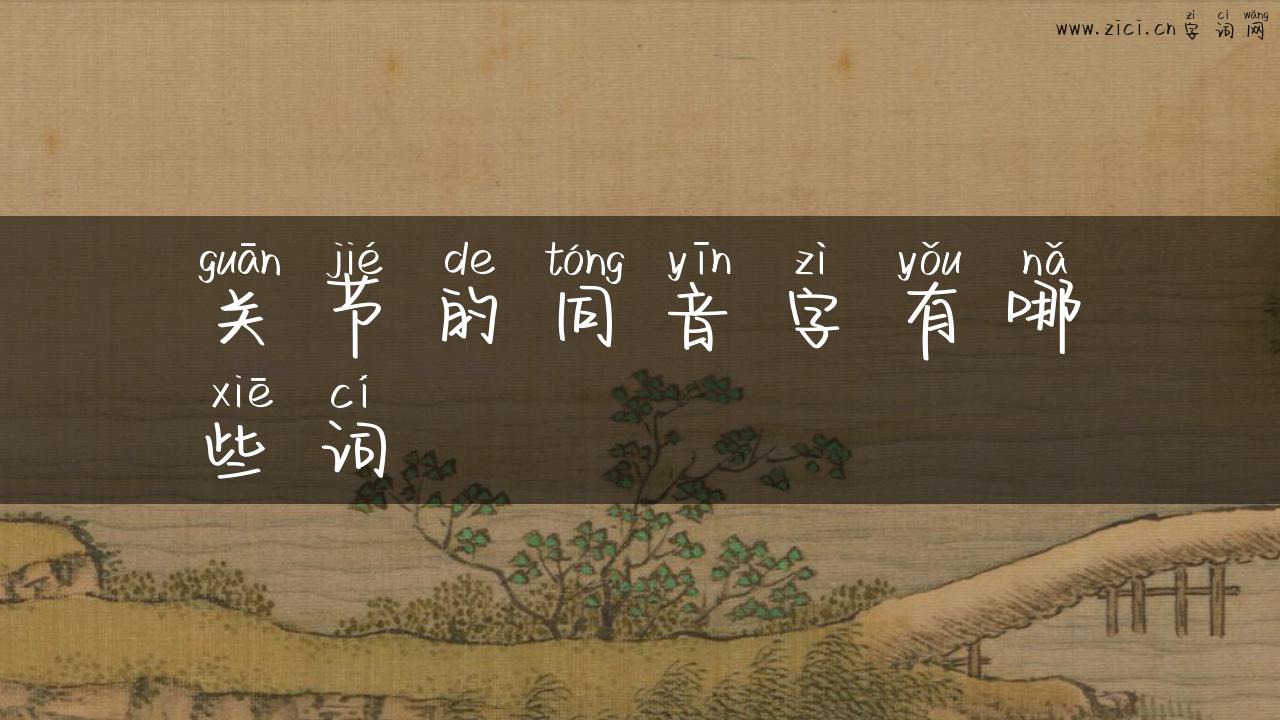 zì cí wǎng
www.zici.cn 字 词 网
guān jié de tóng yīn zì yǒu nǎ
关 节 的 同 音 字 有 哪
xiē cí
些 词